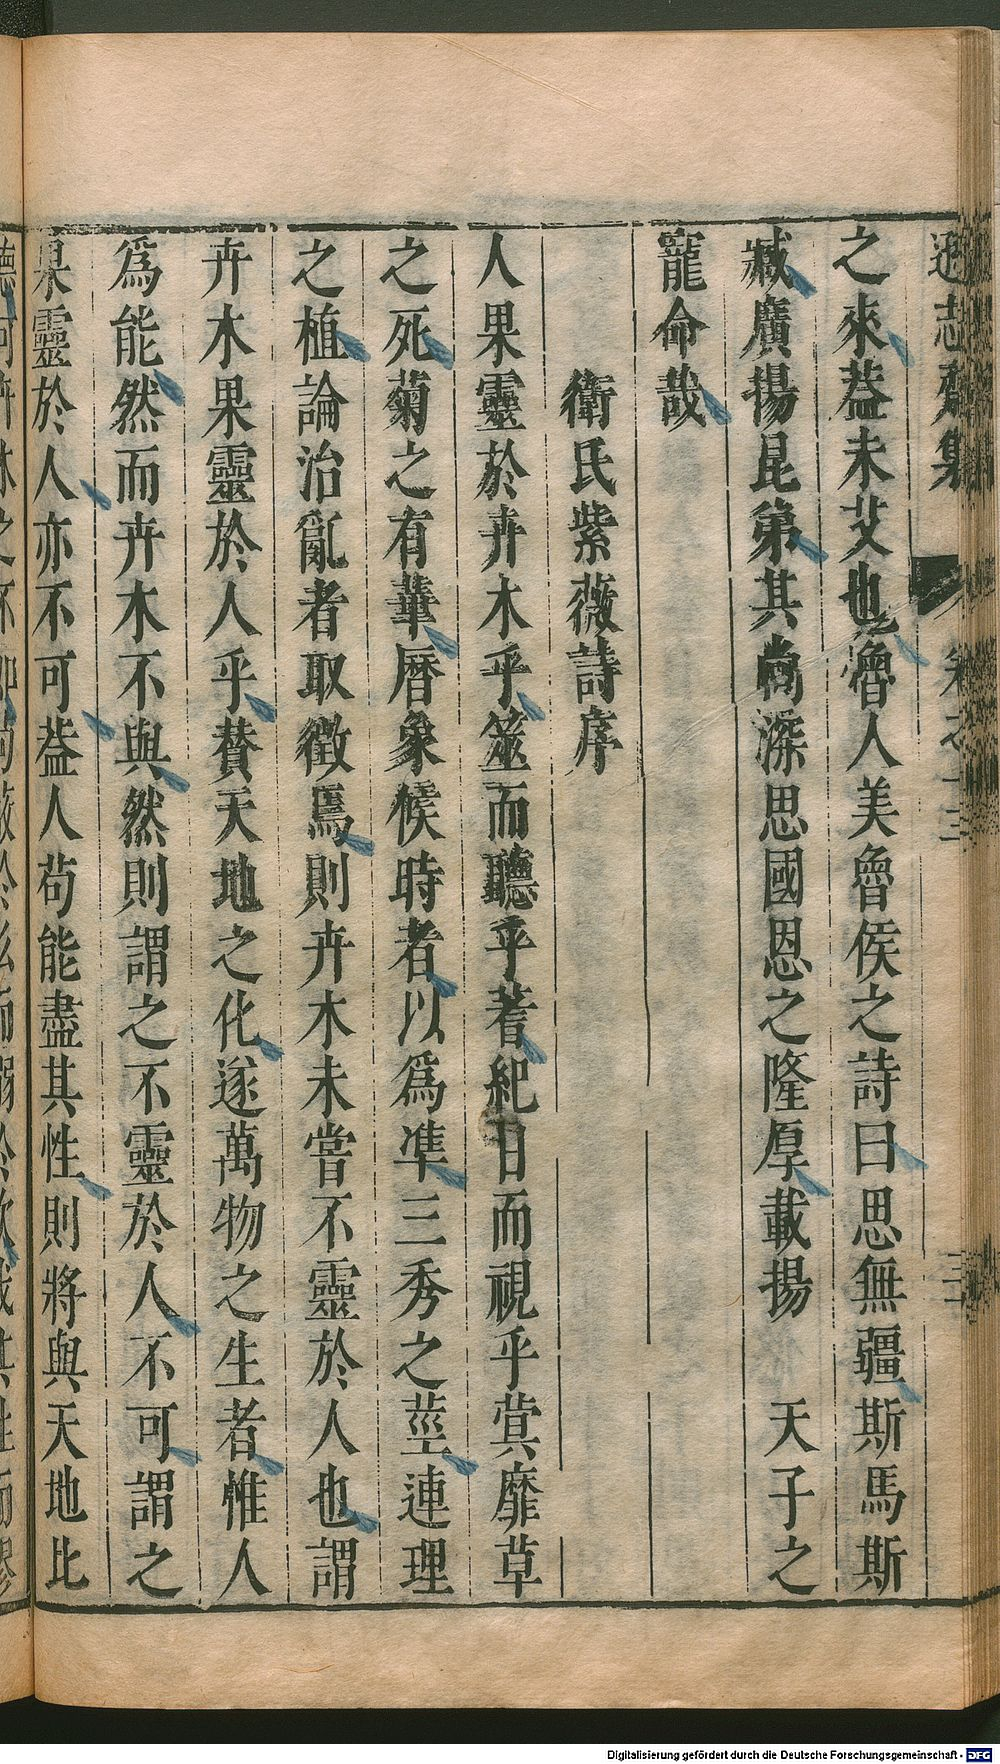 遜志齋集 卷之十三 三
之來葢未艾也魯人美魯侯之詩曰思無疆斯馬斯
臧廣揚昆第其尚深思國恩之隆厚載揚 天子之
寵命哉
衛氏紫薇詩序
人果靈於卉木乎筮而聽乎蓍紀日而視乎蓂靡草
之死菊之有華曆象候時者以爲準三秀之莖連理
之植論治亂者取徵焉則卉木未嘗不靈於人也謂
卉木果靈於人乎賛天地之化遂萬物之生者惟人
爲能然而卉木不與然則謂之不靈於人不可謂之
果靈於人亦不可葢人茍能盡其性則將與天地比
Digitalisierung gefördert durch die Deutsche Forschungsgemeinschaft - DFG